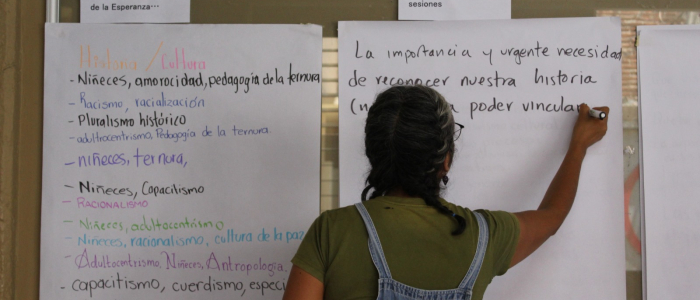 de la Esperanza...
sesiones
Historia / Cultura
- Niñeces, amorocidad, pedagogía de la ternura
- Racismo, racialización
- Pluralismo histórico
- adultocentrismo, Pedagogía de la ternura.
- niñeces, ternura,
- Niñeces, Capacitismo
- RACIONALISMO
- Niñeces, adultocentrismo
- Niñeces, racionalismo, cultura de la paz
- Adultocentrismo, Niñeces, Antropología,
- capacitismo, cuerdismo, especi
La importancia y urgente necesidad
de reconocer nuestra historia
poder vincular